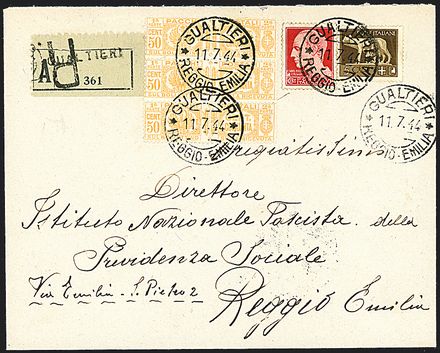 GUALTIERI
R
361
PACCHI
CENT 50
CENT 50
CENT 50
GUALTIERI
11.7.44
REGGIO-EMILIA
GUALTIERI
11.7.44
REGGIO-EMILIA
GUALTIERI
11.7.44
REGGIO-EMILIA
ITALIANE
GUALTIERI
11.7.44
REGGIO-EMILIA
Direttore
Istituto Nazionale Fascista della
Previdenza Sociale
Via Emilia - S. Pietro 2
Reggio Emilia